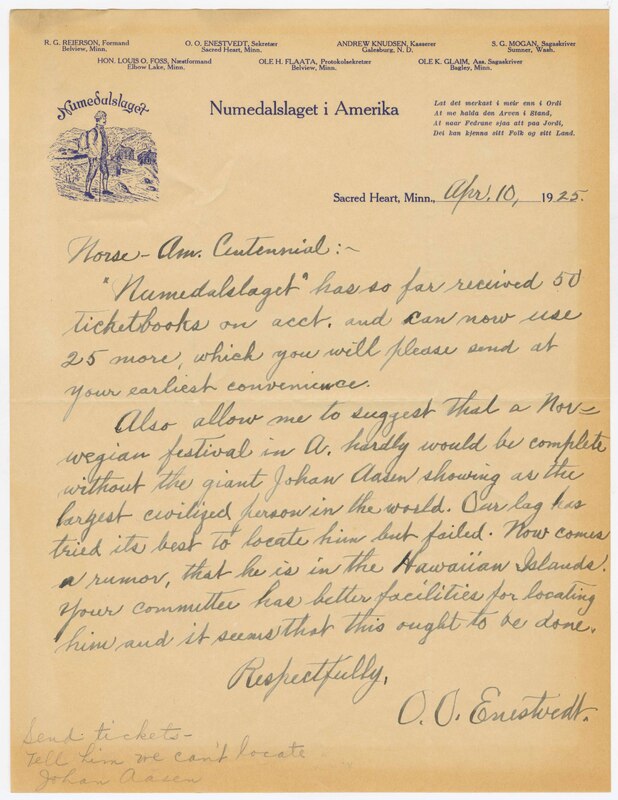 R. G. REIERSON, Formand
Belview, Minn.
O. O. ENESTVEDT, Sekretær
Sacred Heart, Minn.
ANDREW KNUDSEN, Kasserer
Galesburg, N. D.
S. G. MOGAN, Sagaskriver
Sumner, Wash.
HON. LOUIS O. FOSS, Næstformand
Elbow Lake, Minn.
OLE H. FLAATA, Protokolsekretær
Belview, Minn.
OLE K. GLAIM, Ass. Sagaskriver
Bagley, Minn.
Numedalslaget
Numedalslaget i Amerika
Lat det merkast i meir enn i Ordi
At me halda den Arven i Stand,
At naar Fedrane sjaa att paa Jordi,
Dei kan kjenna sitt Folk og sitt Land.
Sacred Heart, Minn., Apr. 10, 1925.
Norse-Am. Centennial:~
"Numedalslaget" has so far received 50
ticketbooks on acct. and can now use
25 more, which you will please send at
your earliest convenience.
Also allow me to suggest that a Nor-
wegian festival in A. hardly would be complete
without the giant Johan Aasen showing as the
largest civilized person in the world. Our lag has
tried its best to locate him but failed. Now comes
a rumor, that he is in the Hawaiian Islands.
Your committee has better facilities for locating
him and it seems that this ought to be done.
Respectfully,
O. O. Enestvedt.
Send tickets-
Tell him we can't locate
Johan Aasen